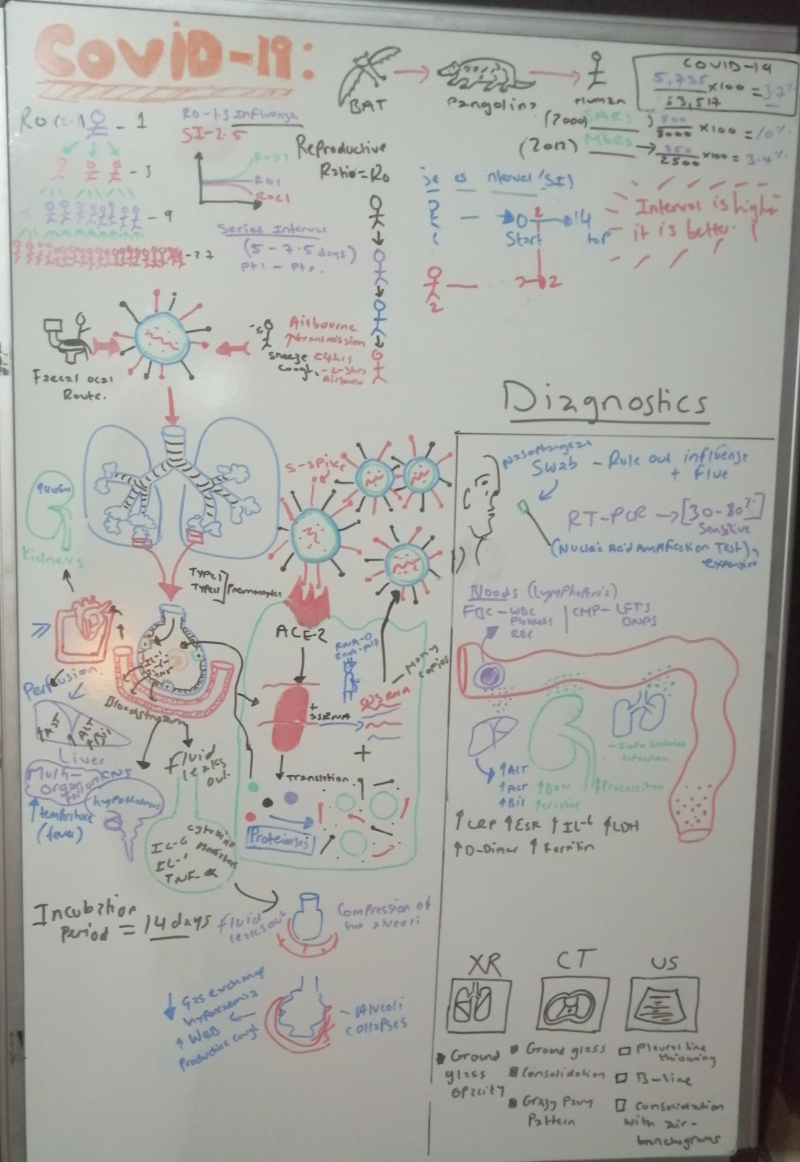 COVID-19:
BAT
Pangolins
Human
COVID-19
5,735
x100 = 3.7%
153,517
(2000) SARS
800
8000 x100 = 10%
(2012) MERS
850
2500 x100 = 3.4%
Ro - 1
- 3
- 9
- 27
Ro-1.3 Influenza
SI-2.5
Ro>1
Ro1
Ro<1
Reproductive
Ratio = Ro
Series Interval
(5 - 7.5 days)
Interval (SI)
0
2
14
Start
2
2
Interval is higher
it is better.
Faecal ocal
Route.
Airbourne
↑transmission
Sneeze
Cough
Airbourn
Diagnostics
Swab - Rule out influenza
+ Flue
RT-PCR → [30-80%]
Sensitive
(Nucleic Acid Amplification Test),
expensive
S-Spike
Kidneys
Type I
Type II
Pneumocytes
ACE-2
Many
copies
RNA
+
SSRNA
+
Translation
Proteinases
Perfusion
Liver
Multi-
organ
CNS
hypothalamus
↑ temperature
(fever)
Bloodstream
fluid
leaks
out.
Cytokine
IL-6
IL-1
TNF-α
Bloods (Lymphopenia)
FBC - WBC
Platelets
RBC
CMP - LFTS
↑ALT
↑AST
↑Bil
↑BUN
↑Creatine
↑Procalcitonin
↑CRP ↑ESR ↑IL-6 ↑LDH
↑D-Dimer ↑Ferritin
Incubation
Period = 14 days
fluid
leaks out
Compression of
the alveoli
↓ Gas exchange
hypoxemia
↑ WOB
Productive cough
Alveoli
collapses
XR
CT
US
Ground
glass
opacity
Ground glass
Consolidation
Crazy Pavy
Pattern
Pleural line
thickening
B-line
Consolidation
with air-
bronchograms